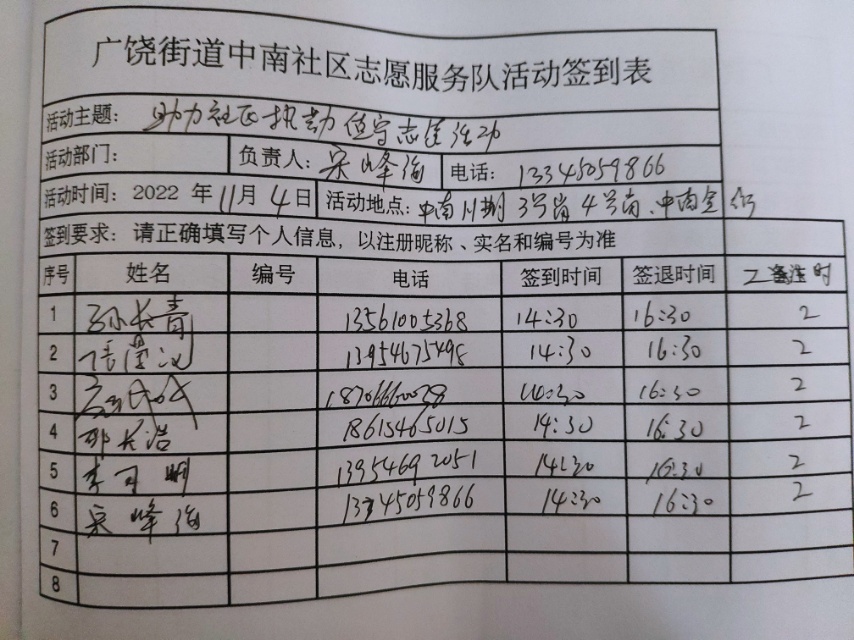 广饶街道中南社区志愿服务队活动签到表
活动主题： 助力社区执勤值守志愿活动
活动部门： 负责人：宋峰 电话：13345059866
活动时间：2022 年 11月 4日 活动地点：中南 3号岗 4号岗、中南
签到要求：请正确填写个人信息，以注册昵称、实名和编号为准
序号 姓名 编号 电话 签到时间 签退时间 时
1 孙长青 13561005368 14:30 16:30 2
2 13954675498 14:30 16:30 2
3 16:30 2
4 18615465015 14:30 16:30 2
5 李 明 13954692051 14:30 16:30 2
6 宋峰 13345059866 14:30 16:30 2
7
8